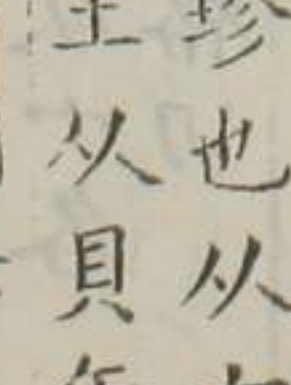 珍也从
王从貝